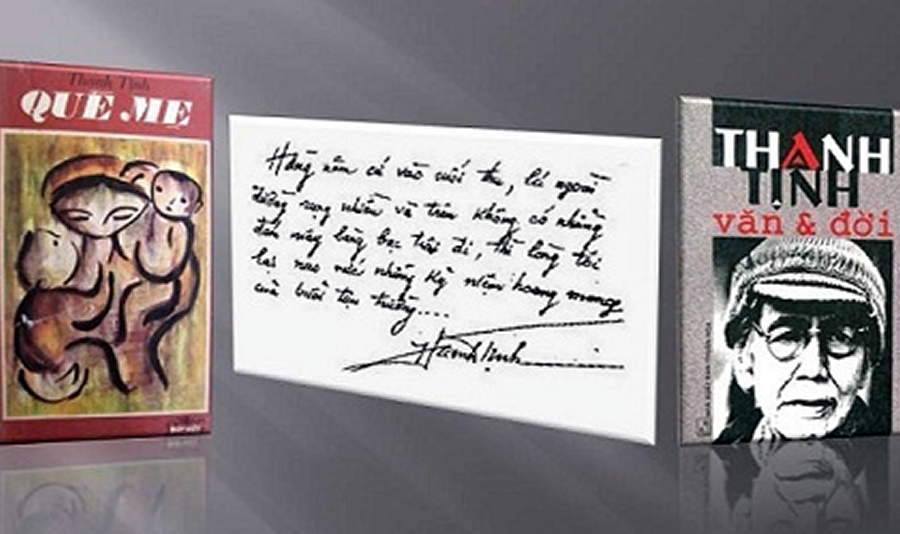 Thanh Tịnh
QUÊ MẸ
Hằng năm cứ vào cuối thu, lá ngoài
đường rụng nhiều và trên không có những
đám mây bàng bạc trôi đi, thì lòng tôi
lại nao nức những kỷ niệm hoang mang
của buổi tựu trường....
Thanh Tịnh
THANH
TỊNH
văn & đời